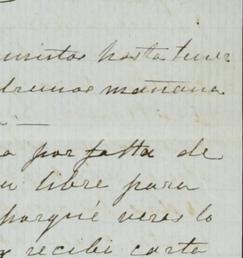 hasta tener
mañana
por falta de
libre para
porqué veras lo
recibi carta